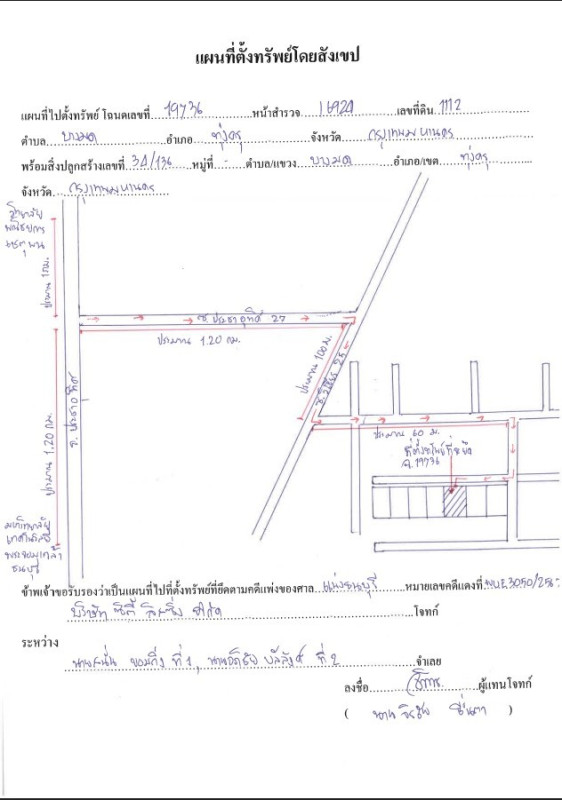 แผนที่ตั้งทรัพย์โดยสังเขป
แผนที่ไปตั้งทรัพย์ โฉนดเลขที่ 19736 หน้าสำรวจ 16924 เลขที่ดิน 1112
ตำบล บางมด อำเภอ ทุ่งครุ จังหวัด กรุงเทพมหานคร
พร้อมสิ่งปลูกสร้างเลขที่ 34/136 หมู่ที่ - ตำบล/แขวง บางมด อำเภอ/เขต ทุ่งครุ
จังหวัด กรุงเทพมหานคร
วิทยาลัย
พณิชยการ
เชตุพน
ประมาณ 1 กม.
ซ.ประชาอุทิศ 27
ประมาณ 1.20 กม.
ประมาณ 100 ม.
ถ.ประชาอุทิศ
ประมาณ 1.20 กม.
ประมาณ 60 ม.
ที่ตั้งทรัพย์ที่จะยึด
ฉ.19736
มหาวิทยาลัย
เทคโนโลยี
พระจอมเกล้า
ธนบุรี
ข้าพเจ้าขอรับรองว่าเป็นแผนที่ไปที่ตั้งทรัพย์ที่ยึดตามคดีแพ่งของศาล แพ่งธนบุรี หมายเลขคดีแดงที่
บริษัท ซิตี้ ลิสซิ่ง จำกัด โจทก์
ระหว่าง
ที่ 1, ที่ 2 จำเลย
ลงชื่อ ผู้แทนโจทก์
( )